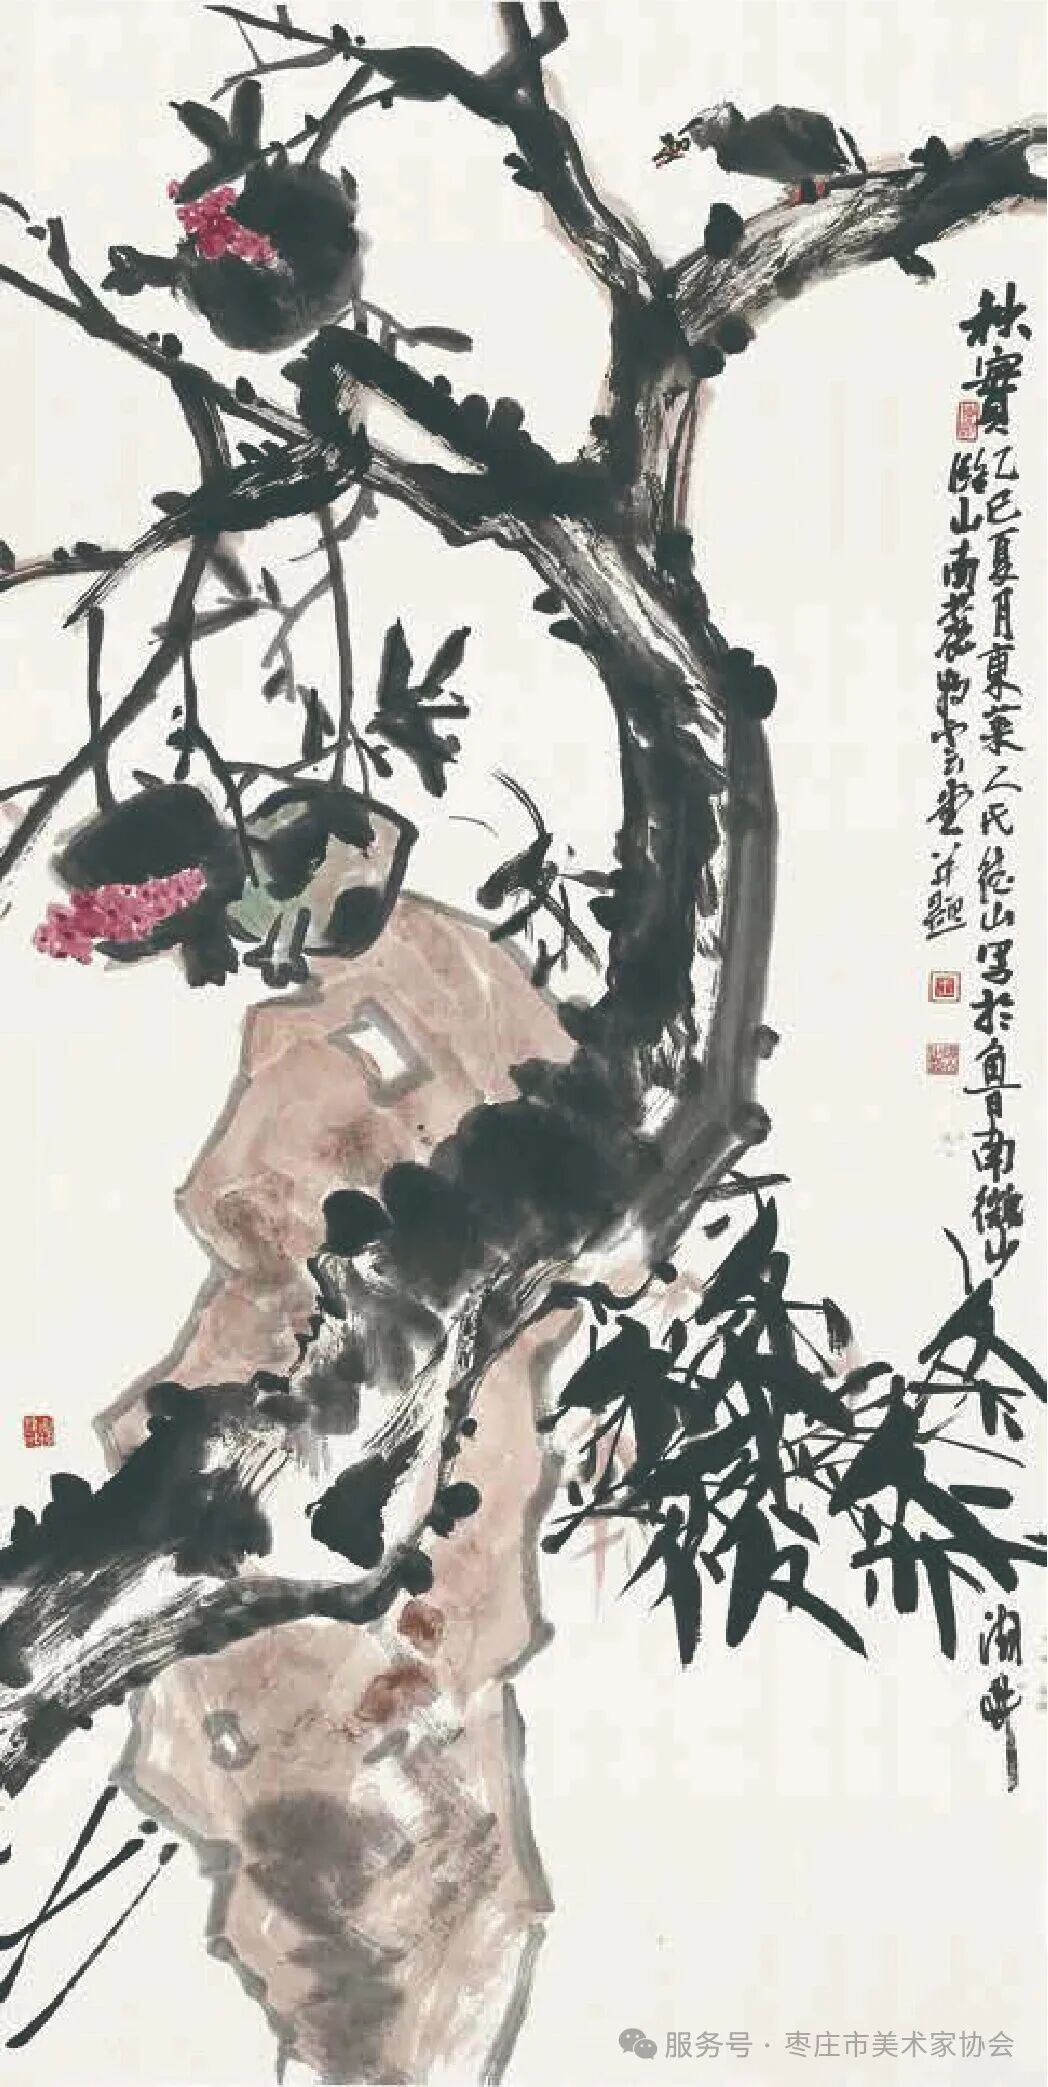 秋實
乙巳夏月東萊人氏德山写於魯南微山湖畔
臨山南麓
雲堂并題
服务号 · 枣庄市美术家协会